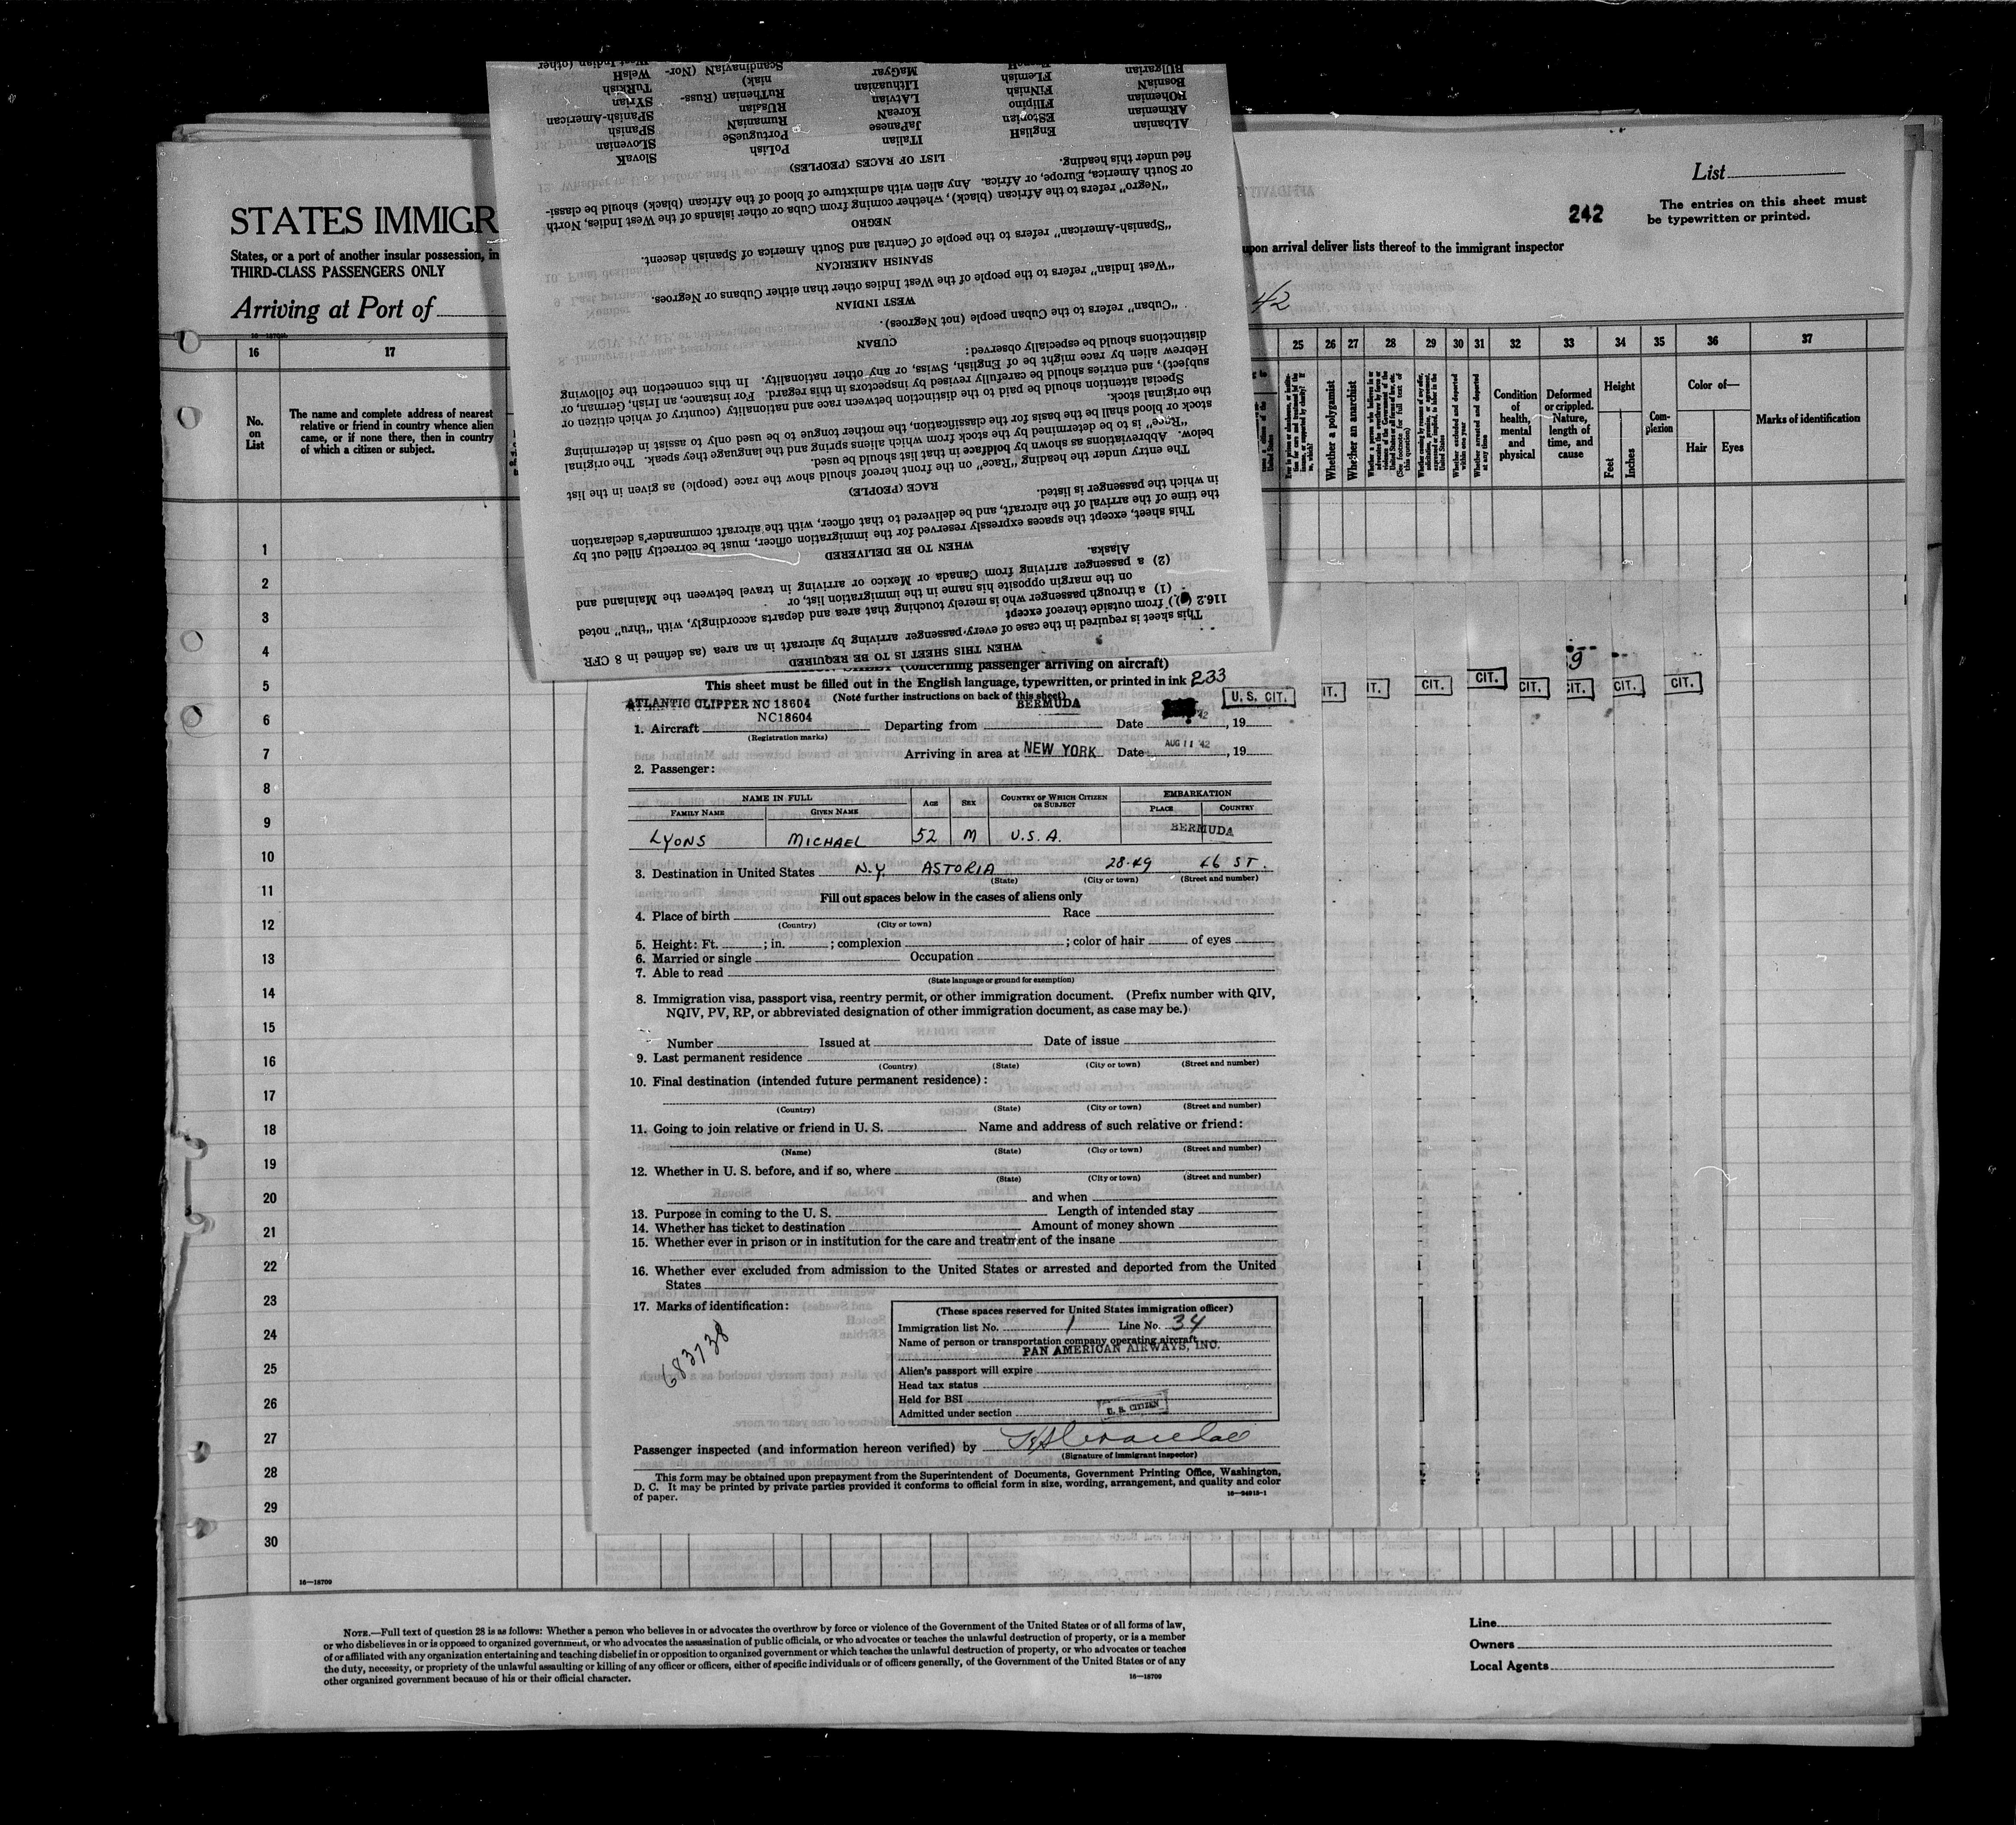 List
242
The entries on this sheet must
be typewritten or printed.
STATES IMMIGR
States, or a port of another insular possession, in
upon arrival deliver lists thereof to the immigrant inspector
THIRD-CLASS PASSENGERS ONLY
Arriving at Port of
42
16 17 25 26 27 28 29 30 31 32 33 34 35 36 37
No.
on
List
The name and complete address of nearest
relative or friend in country whence alien
came, or if none there, then in country
of which a citizen or subject.
Whether a polygamist
Whether an anarchist
Whether excluded and deported
within one year
Whether arrested and deported
at any time
Condition
of
health,
mental
and
physical
Deformed
or crippled.
Nature,
length of
time, and
cause
Height
Feet
Inches
Com-
plexion
Color of—
Hair Eyes
Marks of identification
1
2
3
4
5
6
7
8
9
10
11
12
13
14
15
16
17
18
19
20
21
22
23
24
25
26
27
28
29
30
16—18709
WHEN THIS SHEET IS TO BE REQUIRED
This sheet is required in the case of every passenger arriving by aircraft in an area (as defined in 8 CFR
116.2 ( )) from outside thereof except
(1) a through passenger who is merely touching that area and departs accordingly, with "thru" noted
on the margin opposite his name in the immigration list, or
(2) a passenger arriving from Canada or Mexico or arriving in travel between the Mainland and
Alaska.
WHEN TO BE DELIVERED
This sheet, except the spaces expressly reserved for the immigration officer, must be correctly filled out by
the time of the arrival of the aircraft, and be delivered to that officer, with the aircraft commander's declaration
in which the passenger is listed.
RACE (PEOPLE)
The entry under the heading "Race" on the front hereof should show the race (people) as given in the list
below. Abbreviations as shown by boldface in that list should be used.
"Race" is to be determined by the stock from which aliens spring and the language they speak. The original
stock or blood shall be the basis for the classification, the mother tongue to be used only to assist in determining
the original stock.
Special attention should be paid to the distinction between race and nationality (country of which citizen or
subject), and entries should be carefully revised by inspectors in this regard. For instance, an Irish, German, or
Hebrew alien by race might be of English, Swiss, or any other nationality. In this connection the following
distinctions should be especially observed:
CUBAN
"Cuban" refers to the Cuban people (not Negroes).
WEST INDIAN
"West Indian" refers to the people of the West Indies other than either Cubans or Negroes.
SPANISH AMERICAN
"Spanish-American" refers to the people of Central and South America of Spanish descent.
NEGRO
"Negro" refers to the African (black), whether coming from Cuba or other islands of the West Indies, North
or South America, Europe, or Africa. Any alien with admixture of blood of the African (black) should be classi-
fied under this heading.
LIST OF RACES (PEOPLES)
ALbanian EnglisH ITalian PoLish SlovaK
ARmenian EStonian JaPanese PortugueSe SLovenian
BOhemian FIlipino KoreaN RumaniaN SPanish
BosniaN FiNNish LAtvian RUssian SPanish-American
BUlgarian FLemish LIthuanian RuThenian (Russ- SYrian
MaGyar niak) TuRkish
ScandinaviaN (Nor- WelsH
West Indian (other
(concerning passenger arriving on aircraft)
This sheet must be filled out in the English language, typewritten, or printed in ink 233
(Note further instructions on back of this sheet)
U. S. CIT. IT. IT. CIT. CIT. CIT. CIT. CIT. CIT.
9
ATLANTIC CLIPPER NC 18604 BERMUDA
1. Aircraft NC18604 Departing from Date 42, 19
(Registration marks)
Arriving in area at NEW YORK Date AUG 11 '42, 19
2. Passenger:
NAME IN FULL AGE SEX COUNTRY OF WHICH CITIZEN OR SUBJECT EMBARKATION
FAMILY NAME GIVEN NAME PLACE COUNTRY
LYONS MICHAEL 52 M U.S.A. BERMUDA
3. Destination in United States N.Y. ASTORIA 28-49 46 ST.
(State) (City or town) (Street and number)
Fill out spaces below in the cases of aliens only
4. Place of birth Race
(Country) (City or town)
5. Height: Ft. ; in. ; complexion ; color of hair of eyes
6. Married or single Occupation
7. Able to read
(State language or ground for exemption)
8. Immigration visa, passport visa, reentry permit, or other immigration document. (Prefix number with QIV,
NQIV, PV, RP, or abbreviated designation of other immigration document, as case may be.)
Number Issued at Date of issue
9. Last permanent residence
(Country) (State) (City or town) (Street and number)
10. Final destination (intended future permanent residence):
(Country) (State) (City or town) (Street and number)
11. Going to join relative or friend in U. S. Name and address of such relative or friend:
(Name) (State) (City or town) (Street and number)
12. Whether in U. S. before, and if so, where
(State) (City or town) (Street and number)
and when
13. Purpose in coming to the U. S. Length of intended stay
14. Whether has ticket to destination Amount of money shown
15. Whether ever in prison or in institution for the care and treatment of the insane
16. Whether ever excluded from admission to the United States or arrested and deported from the United
States
17. Marks of identification:
683738
(These spaces reserved for United States immigration officer)
Immigration list No. 1 Line No. 34
Name of person or transportation company operating aircraft
PAN AMERICAN AIRWAYS, INC.
Alien's passport will expire
Head tax status
Held for BSI
Admitted under section U. S. CITIZEN
Passenger inspected (and information hereon verified) by
(Signature of immigrant inspector)
This form may be obtained upon prepayment from the Superintendent of Documents, Government Printing Office, Washington,
D. C. It may be printed by private parties provided it conforms to official form in size, wording, arrangement, and quality and color
of paper.
NOTE.—Full text of question 28 is as follows: Whether a person who believes in or advocates the overthrow by force or violence of the Government of the United States or of all forms of law,
or who disbelieves in or is opposed to organized government, or who advocates the assassination of public officials, or who advocates or teaches the unlawful destruction of property, or is a member
of or affiliated with any organization entertaining and teaching disbelief in or opposition to organized government or which teaches the unlawful destruction of property, or who advocates or teaches
the duty, necessity, or propriety of the unlawful assaulting or killing of any officer or officers, either of specific individuals or of officers generally, of the Government of the United States or of any
other organized government because of his or their official character.
16—18709
Line
Owners
Local Agents